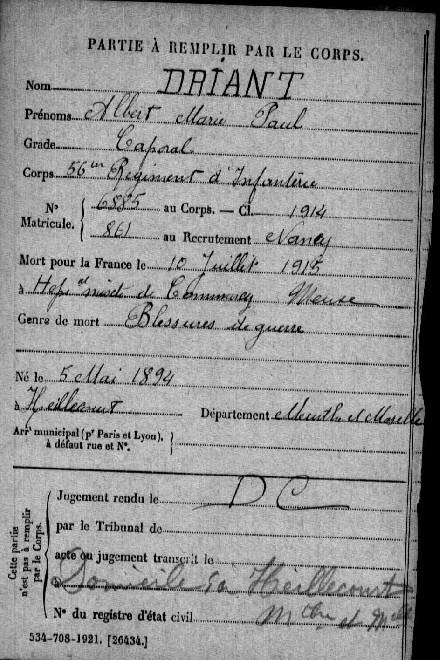 PARTIE À REMPLIR PAR LE CORPS.
Nom DRIANT
Prénoms Albert Marie Paul
Grade Caporal
Corps 56em Régiment d'Infanterie
N° Matricule. { 6885 au Corps. — Cl. 1914
861 au Recrutement Nancy
Mort pour la France le 10 Juillet 1915
à Hop al mixte de Commercy Meuse
Genre de mort Blessures de guerre
Né le 5 Mai 1894
à Heillecourt Département Meurthe et Moselle
Arrt municipal (pr Paris et Lyon), à défaut rue et N°.
Cette partie n'est pas à remplir par le Corps.
Jugement rendu le DC
par le Tribunal de
acte ou jugement transcrit le
à Domicile à Heillecourt
N° du registre d'état civil Mthe et Mlle
534-708-1921. [26434.]